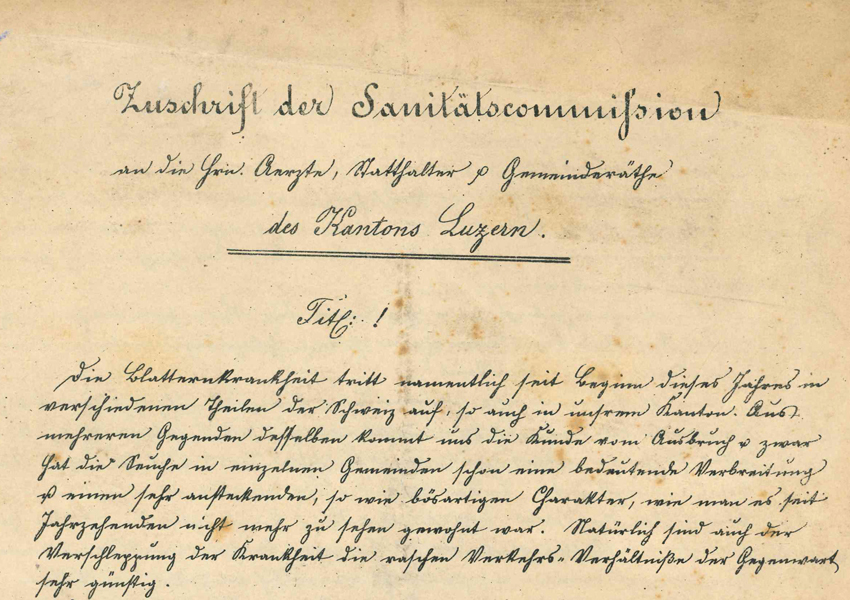 Zuschrift der Sanitätscommission
an die Hrn. Aerzte, Statthalter u Gemeinderäthe
des Kantons Luzern.
Titl: !
Die Blatternkrankheit tritt namentlich seit Beginn dieses Jahres in
verschiedenen Theilen der Schweiz auf, so auch in unsrem Kanton. Aus
mehreren Gegenden desselben kommt uns die Kunde vom Ausbruch u zwar
hat die Seuche in einzelnen Gemeinden schon eine bedeutende Verbreitung
u einen sehr ansteckenden, so wie bösartigen Charakter, wie man es seit
Jahrzehenden nicht mehr zu sehen gewohnt war. Natürlich sind auch der
Verschleppung der Krankheit die raschen Verkehrs-Verhältniße der Gegenwart
sehr günstig.